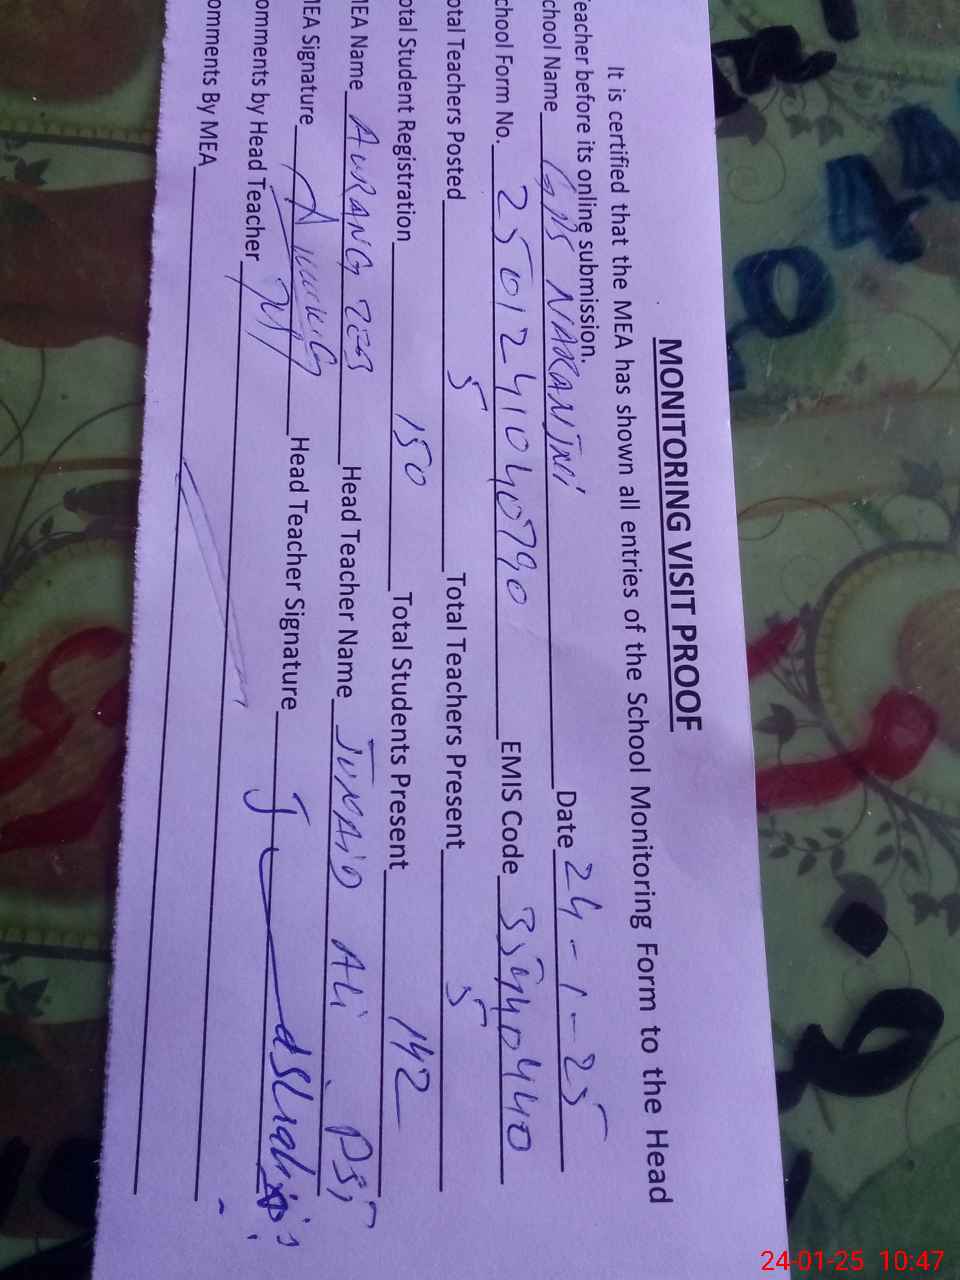 MONITORING VISIT PROOF
It is certified that the MEA has shown all entries of the School Monitoring Form to the Head
eacher before its online submission.
chool Name GPS NARANJI Date 24-1-25
chool Form No. 2501241040790 EMIS Code
otal Teachers Posted 5 Total Teachers Present 5
otal Student Registration 150 Total Students Present 142
MEA Name AURANG ZEB Head Teacher Name JUNAID ALI
MEA Signature Head Teacher Signature
omments by Head Teacher
omments By MEA
24-01-25 10:47